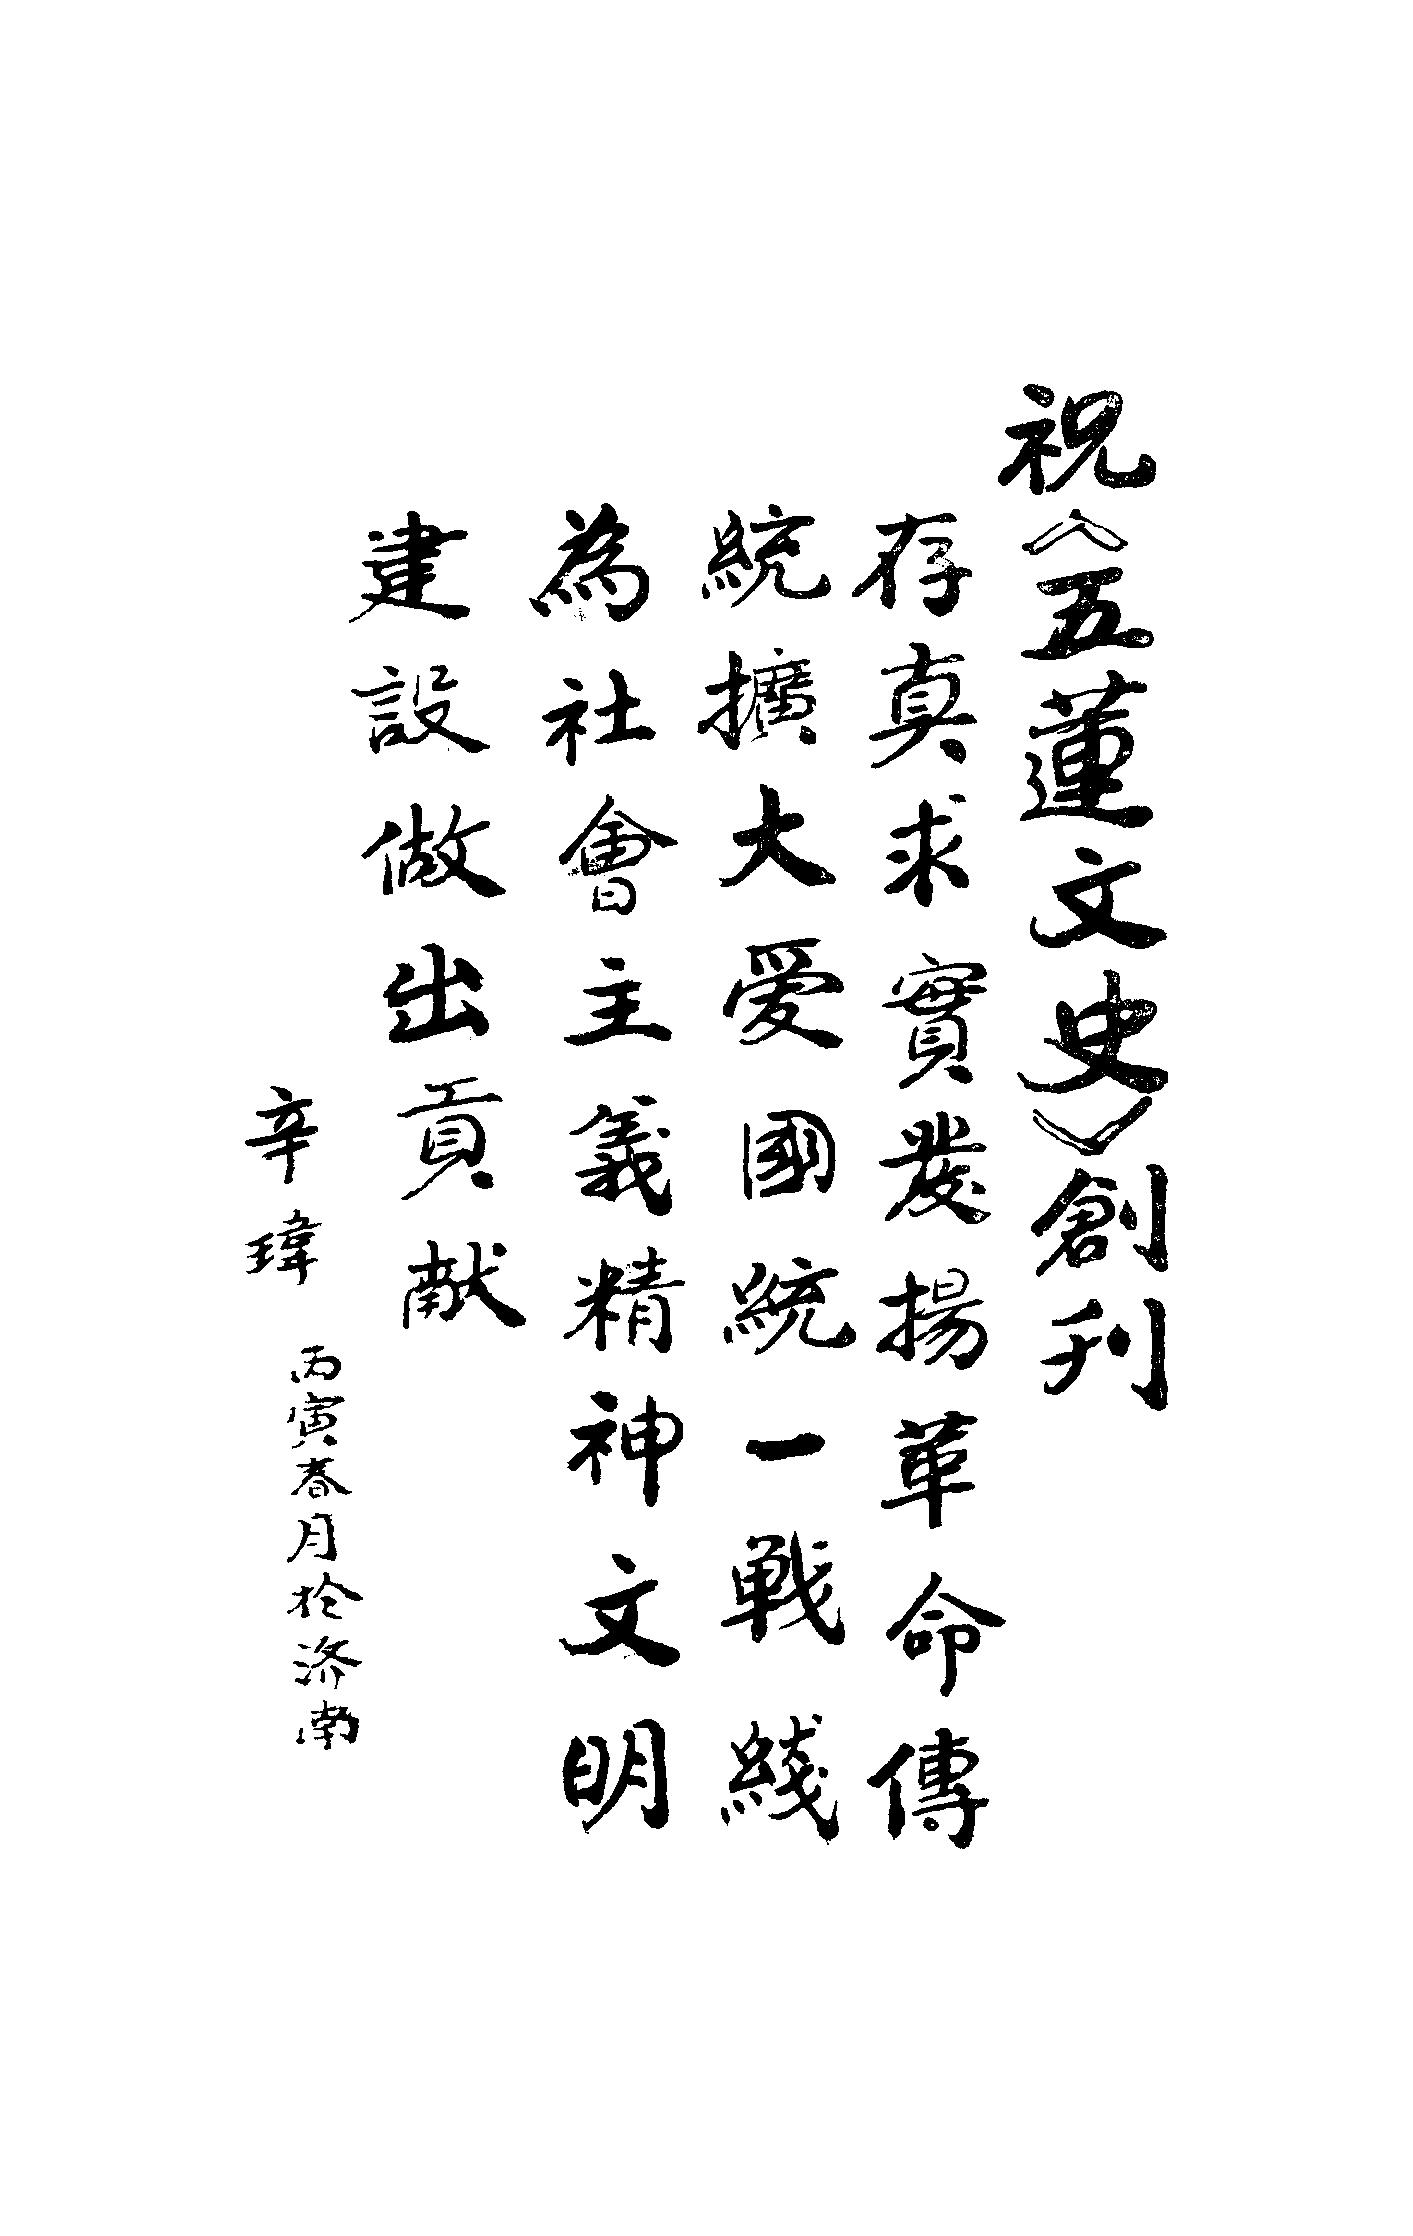 祝《五蓮文史》創刊
存真求實發揚革命傳
統擴大爱國統一戰綫
為社會主義精神文明
建設做出貢献
辛瑋
丙寅春月於济南